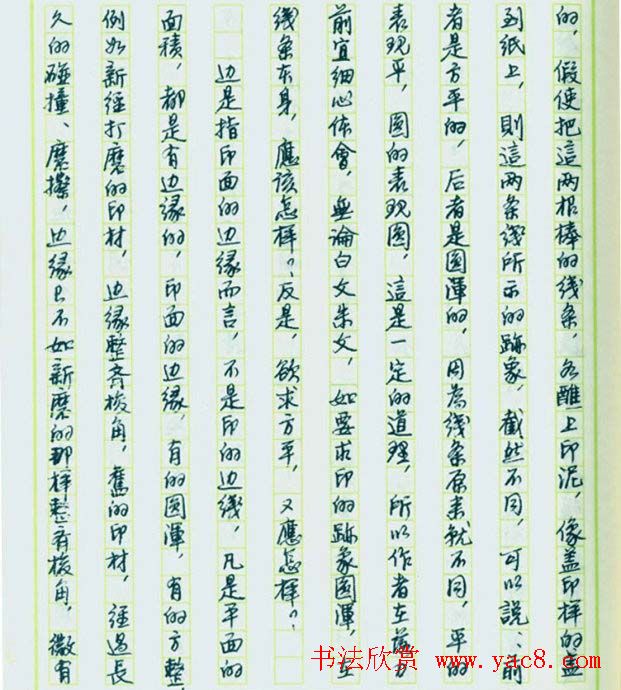 的，假使把這两根棒的线条，各醮上印泥，像盖印样的盖
到纸上，則這两条线所示的跡象，截然不同，可以說：前
者是方平的，后者是圆渾的，因為线条原来就不同，平的
表现平，圆的表现圆，這是一定的道理，所以作者在落刀
前宜细心体會，無論白文朱文，如要求印的跡象圆渾，在
线条本身，應该怎样？反是，欲求方平，又應怎样？
边是指印面的边缘而言，不是印的边线，凡是平面的
面積，都是有边缘的，印面的边缘，有的圆渾，有的方整，
例如新经打磨的印材，边缘整齐棱角，舊的印材，经過長
久的碰撞、磨擦，边缘已不如新磨的那样整齐棱角，微有
书法欣赏 www.yac8.com